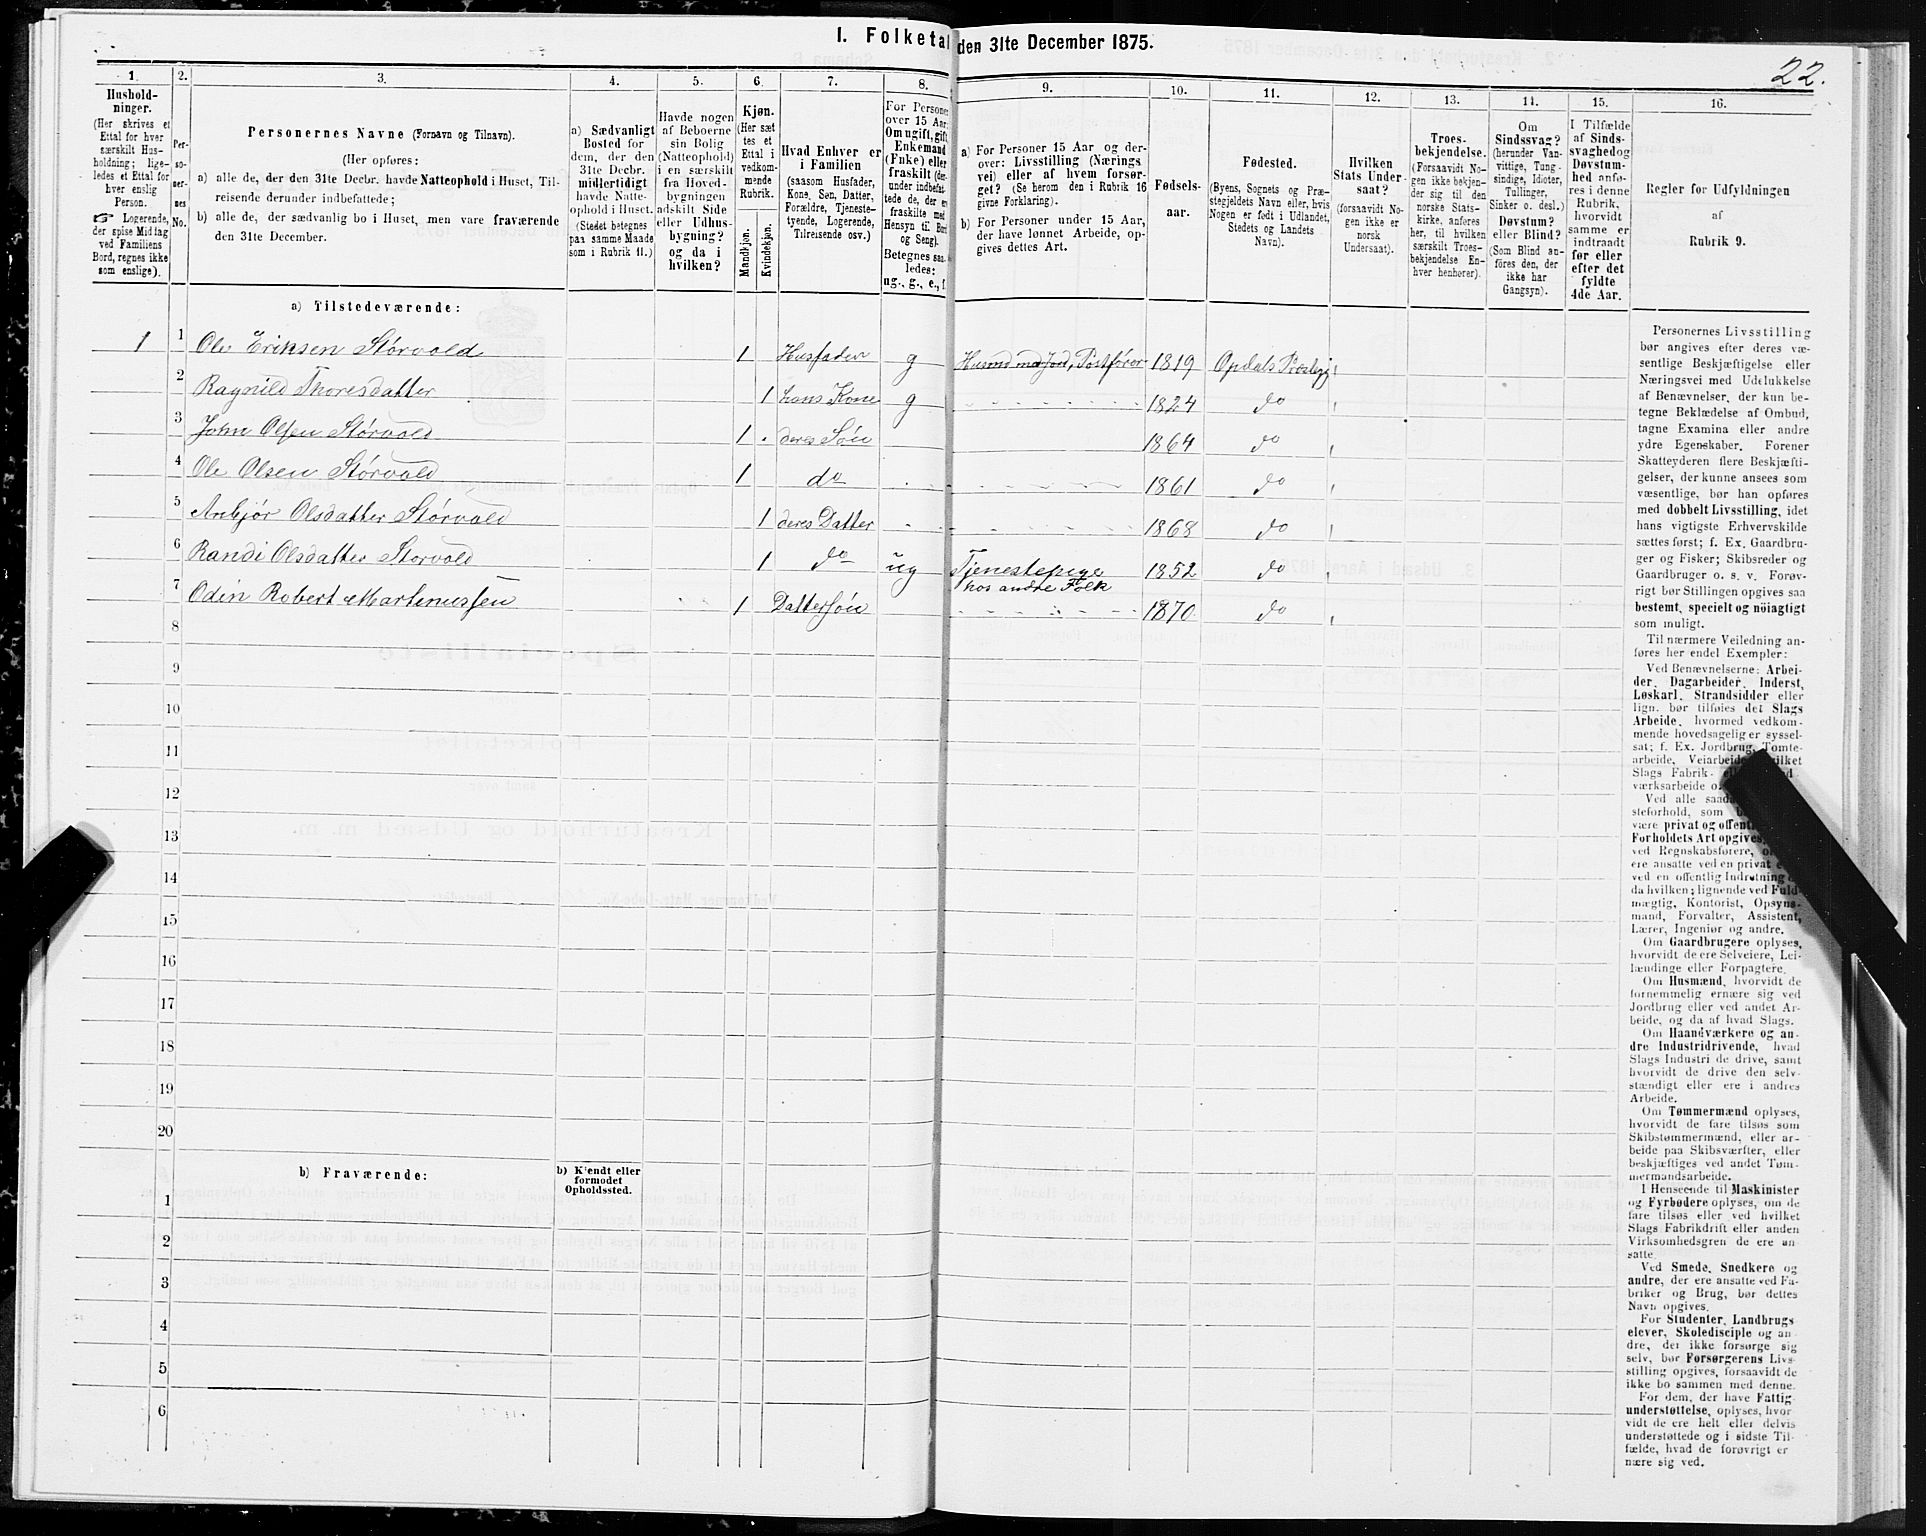 I. Folketal den 31te December 1875.
22.
1.
Hushold-
ninger.
(Her skrives et
Ettal for hver
særskilt Hus-
holdning; lige-
ledes et Ettal for
hver enslig
Person.
☞ Logerende,
der spise Middag
ved Familiens
Bord, regnes ikke
som enslige).
2.
Per-
so-
ner-
nes
No.
3.
Personernes Navne (Fornavn og Tilnavn).
(Her opføres:
a) alle de, der den 31te Decbr. havde Natteophold i Huset, Til-
reisende derunder indbefattede;
b) alle de, der sædvanlig bo i Huset, men vare fraværende
den 31te December.
4.
a) Sædvanligt
Bosted for
dem, der den
31te Decbr.
midlertidigt
havde Natte-
ophold i Huset.
(Stedet betegnes
paa samme Maade
som i Rubrik 11.)
5.
Havde nogen
af Beboerne
sin Bolig
(Natteophold)
i en særskilt
fra Hoved-
bygningen
adskilt Side
eller Udhus-
bygning?
og da i
hvilken?
6.
Kjøn.
(Her sæt
tes et
Ettal i
vedkom-
mende
Rubrik.
Mandkjøn.
Kvindekjøn.
7.
Hvad Enhver er
i Familien
(saasom Husfader,
Kone, Søn, Datter,
Forældre, Tjeneste-
tyende, Logerende,
Tilreisende osv.)
8.
For Personer
over 15 Aar:
Om ugift, gift,
Enkemand
(Enke) eller
fraskilt (der-
under indbefat-
tede de, der er
fraskilte med
Hensyn til Bord
og Seng).
Betegnes saa-
ledes:
ug., g., e., f.
9.
a) For Personer 15 Aar og der-
over: Livsstilling (Nærings
vei) eller af hvem forsør-
get? (Se herom den i Rubrik 16
givne Forklaring).
b) For Personer under 15 Aar,
der have lønnet Arbeide, op-
gives dettes Art.
10.
Fødsels-
aar.
11.
Fødested.
(Byens, Sognets og Præ-
stegjeldets Navn eller, hvis
Nogen er født i Udlandet,
Stedets og Landets
Navn).
12.
Hvilken
Stats Under-
saat?
(forsaavidt No-
gen ikke er
norsk
Undersaat).
13.
Troes-
bekjendelse.
(Forsaavidt No-
gen ikke bekjen-
der sig til den
norske Stats-
kirke, anføres
her, til hvilken
særskilt Troes-
bekjendelse En-
hver henhører).
14.
Om
Sindssvag?
(herunder Van-
vittige, Tung-
sindige, Idioter,
Tullinger,
Sinker o. desl.)
Døvstum?
eller Blind?
(Som Blind an-
føres den, der
ikke har
Gangsyn).
15.
I Tilfælde
af Sinds-
svaghed og
Døvstum-
hed anfø-
res i denne
Rubrik,
hvorvidt
samme er
indtraadt
før eller
efter det
fyldte
4de Aar.
16.
Regler for Udfyldningen
af
Rubrik 9.
a) Tilstedeværende:
1 1 Ole Eriksen Störvold 1 Husfader g Husmd med Jord, Postförer 1819 Opdals Præstegj
2 Ragnild Thoresdatter 1 hans Kone g 1824 do
3 John Olsen Störvold 1 deres Sön 1864 do
4 Ole Olsen Störvold 1 do 1861 do
5 Anbjör Olsdatter Störvold 1 deres Datter 1868 do
6 Randi Olsdatter Storvold 1 do ug Tjenestepige 1852 do
hos andre Folk
7 Odin Robert Martinussen 1 Dattersön 1870 do
8
9
10
11
12
13
14
15
16
17
18
19
20
b) Fraværende:
b) Kjendt eller
formodet
Opholdssted.
1
2
3
4
5
6
Personernes Livsstilling
bør angives efter deres væ-
sentlige Beskjæftigelse eller
Næringsvei med Udelukkelse
af Benævnelser, der kun be-
tegne Beklædelse af Ombud,
tagne Examina eller andre
ydre Egenskaber. Forener
Skatteyderen flere Beskjæfti-
gelser, der kunne ansees som
væsentlige, bør han opføres
med dobbelt Livsstilling, idet
hans vigtigste Erhvervskilde
sættes først; f. Ex. Gaardbru-
ger og Fisker; Skibsreder og
Gaardbruger o. s. v. Forøv-
rigt bør Stillingen opgives saa
bestemt, specielt og nøiagtigt
som muligt.
Til nærmere Veiledning an-
føres her endel Exempler:
Ved Benævnelserne: Arbei-
der, Dagarbeider, Inderst,
Løskarl, Strandsidder eller
lign. bør tilføies det Slags
Arbeide, hvormed vedkom-
mende hovedsagelig er syssel-
sat; f. Ex. Jordbrug, Tomte-
arbeide, Veiarbeide,
Slags Fabrik-
værksarbeide
Ved alle
steforhold, som
være privat og
Forholdets Art opgives,
ved Regnskabsførere,
ere ansatte ved en privat
ved en offentlig Indretning
da hvilken; lignende ved Fuld-
mægtig, Kontorist, Opsyns-
mand, Forvalter, Assistent,
Lærer, Ingeniør og andre.
Om Gaardbrugere oplyses,
hvorvidt de ere Selveiere, Lei-
lændinge eller Forpagtere.
Om Husmænd, hvorvidt de
fornemmelig ernære sig ved
Jordbrug eller ved andet Ar-
beide, og da af hvad Slags.
Om Haandværkere og an-
dre Industridrivende, hvad
Slags Industri de drive, samt
hvorvidt de drive den selv-
stændigt eller ere i andres
Arbeide.
Om Tømmermænd oplyses,
hvorvidt de fare tilsøs som
Skibstømmermænd, eller ar-
beide paa Skibsværfter, eller
beskjæftiges ved andet Tøm-
mermandsarbeide.
I Henseende til Maskinister
og Fyrbødere oplyses, om de
fare tilsøs eller ved hvilket
Slags Fabrikdrift eller anden
Virksomhedsgren de ere an-
satte.
Ved Smede, Snedkere og
andre, der ere ansatte ved Fa-
briker og Brug, bør dettes
Navn opgives.
For Studenter, Landbrugs
elever, Skoledisciple og an-
dre, der ikke forsørge sig
selv, bør Forsørgerens Livs-
stilling opgives, forsaavidt de
ikke bo sammen med denne.
For dem, der have Fattig-
understøttelse, oplyses, hvor
vidt de ere helt eller delvis
understøttede og i sidste Til-
fælde, hvad de forøvrigt er
nære sig ved.